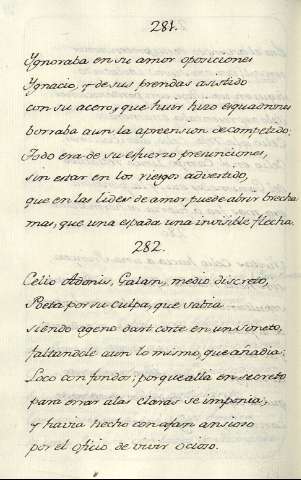 281.
Ygnoraba en su amor oposiciones
Ygnacio, y de sus prendas asistido
con su acero, que huir hizo esquadrones
borraba aun la aprension de competido;
Todo era de su esfuerzo presunciones,
sin estar en los riesgos advertido,
que en las lides de amor puede abrir brecha
mas, que una espada una invisible flecha.
282.
Celio Adonis, Galan, medio discreto,
Poeta por su culpa, que sabia
siendo ageno dar corte en un Soneto,
faltandole aun lo mismo, que añadia;
Loco con fondos; porque alla en secreto
para errar a las claras se imponia;
y havia hecho con afan ansioso
por el oficio de vivir ocioso.